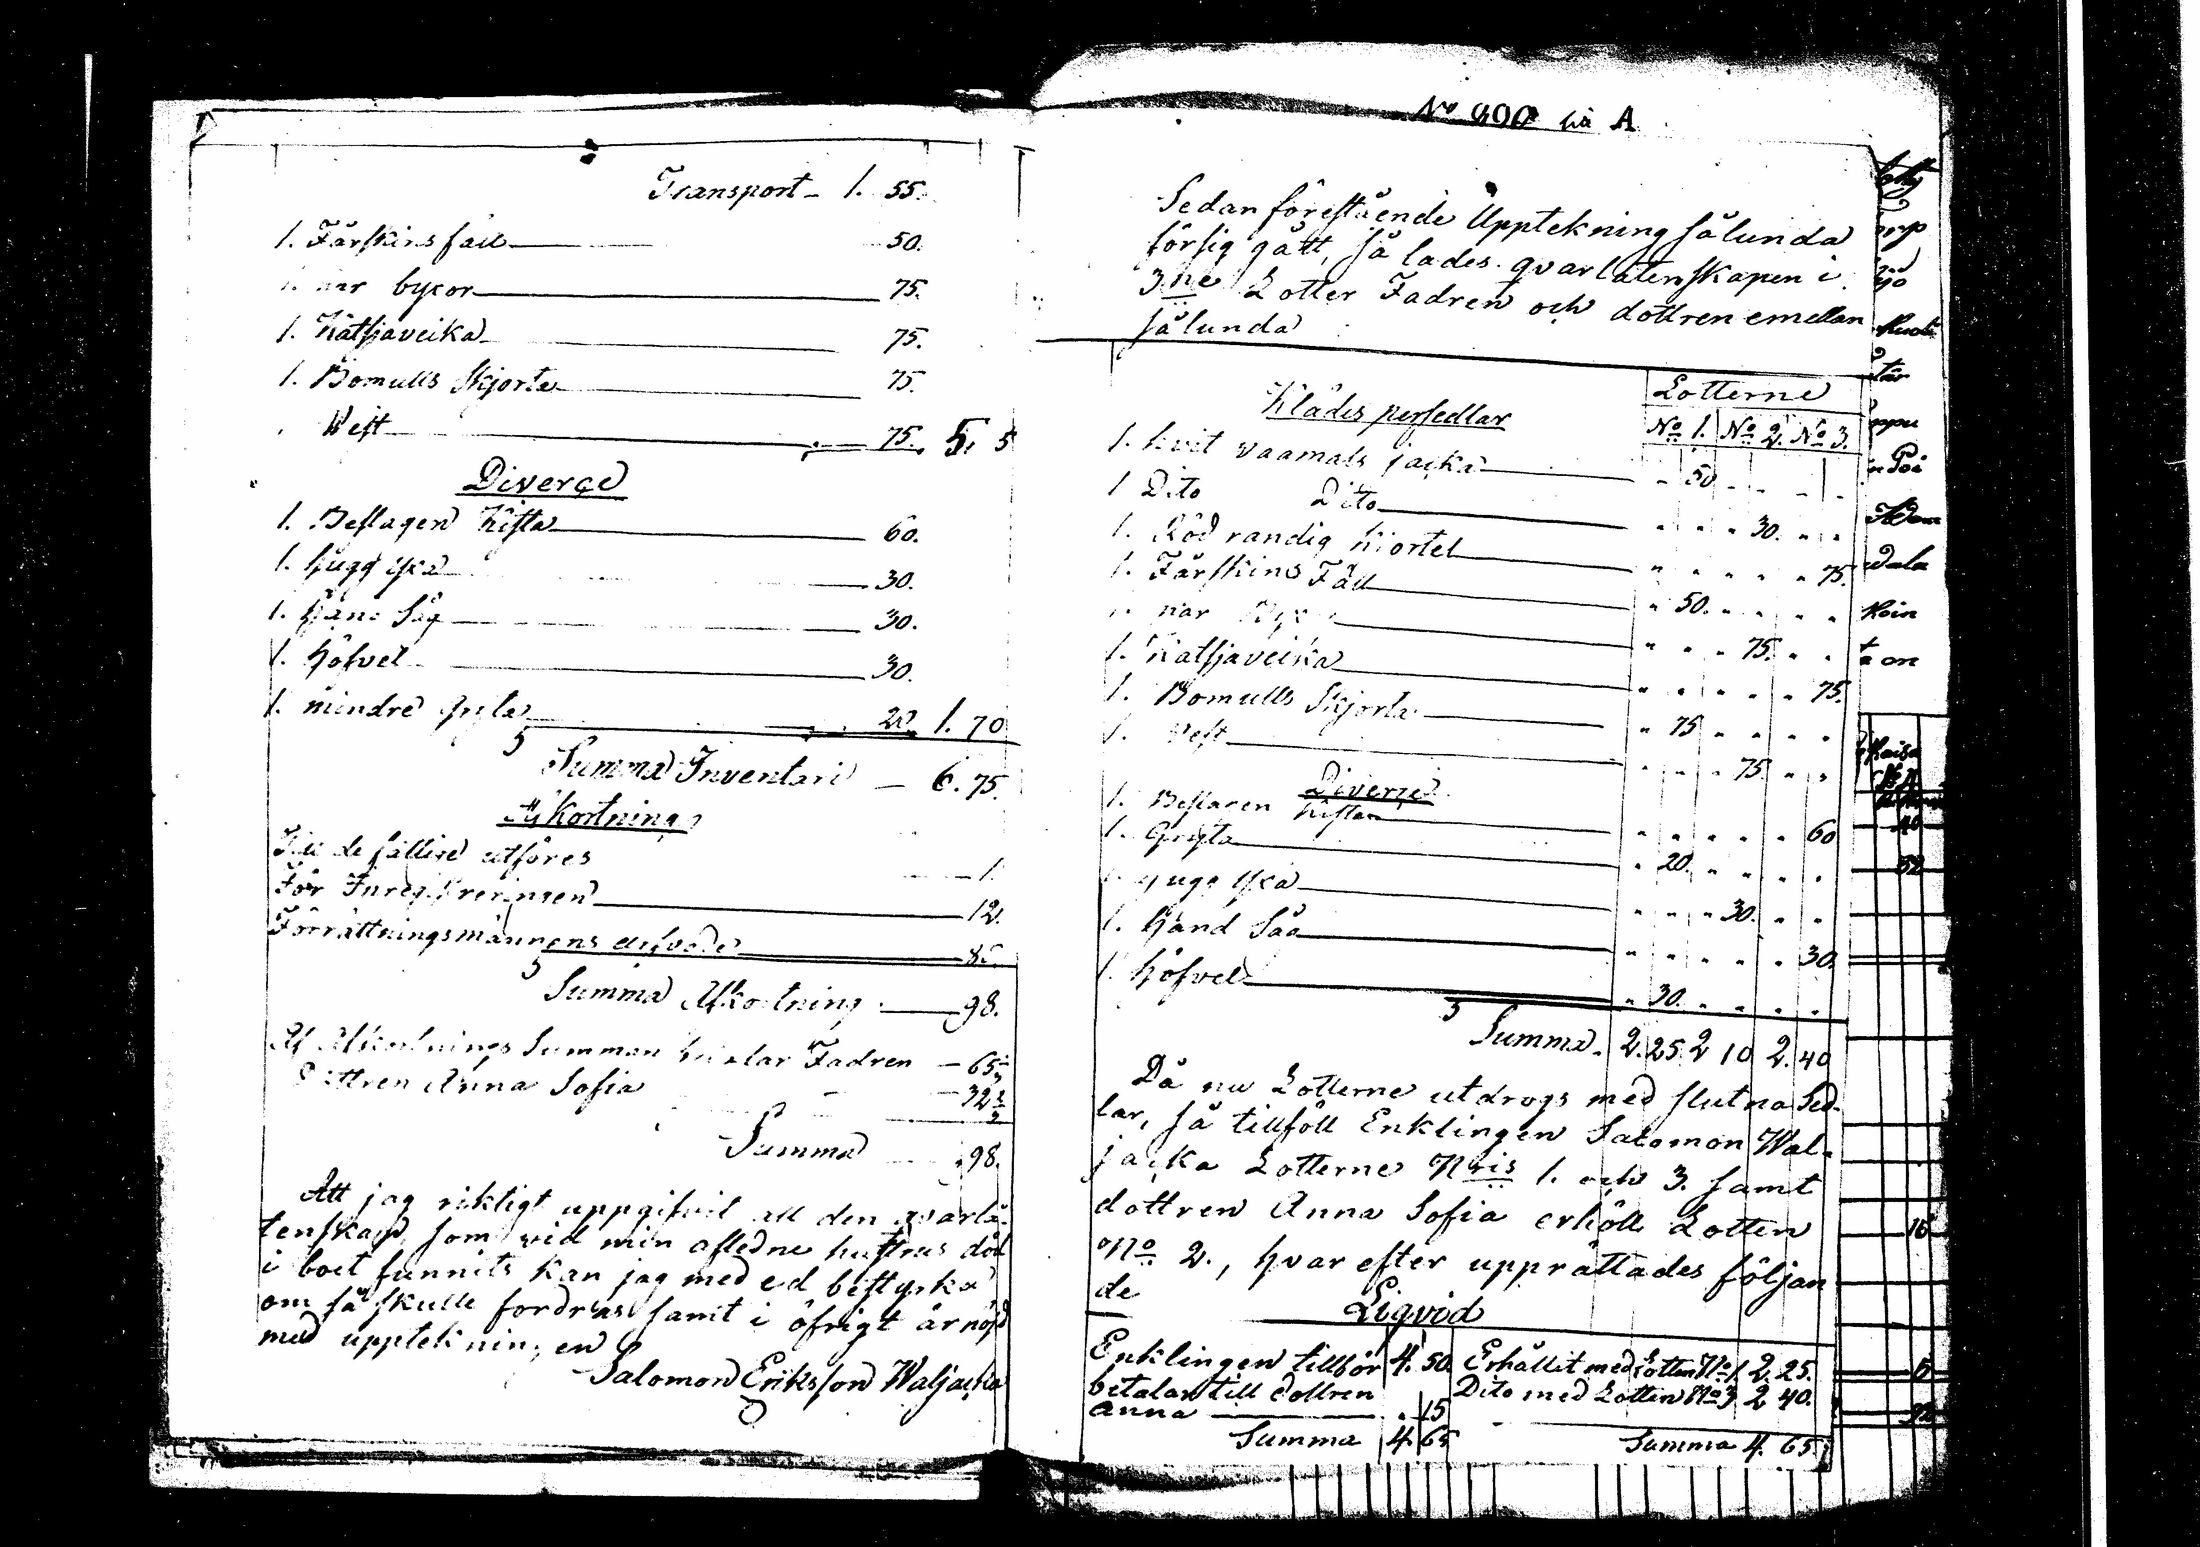 Transport 1. 55.
1. Fårskins fäll 50.
1. par byxor 75.
1. Kåtsjaveika 75.
1. Bomulls Skjorta 75.
Vest 75. 5. 5
Diverçe
1. Beslagen Kista 60.
1. hugg yxa 30.
1. Hand Såg 30.
1. Höfvel 30.
1. mindre gryta 20. 1. 70
Summa Inventari 6. 75.
Afkortning
Till de fattige utföres 1.
För Inregistreringen 12.
Förrättningsmännens arfvode 85.
Summa Afkortning 98.
Af Afkortnings Summan betalar Fadren 65
Dottren Anna Sofia 32
Summa 98.
Att jag riktigt uppgifvit all den qvarlå-
tenskap som vid min afledne hustrus död
i boet funnits kan jag med ed bestyrka
om så skulle fordras samt i öfrigt är nöjd
med uppteknin.en
Salomon Eriksson Waljacka
No 290 A
Sedan föreslående Upptekning sålunda
försig gått, så lades qvarlåtenskapen i
3ne Lotter Fadren och dottren emellan
sålunda
Klädes persedlar Lotterne
No 1. No 2. No 3.
1. hvit vaamals jacka 50
1 Dito Dito 30.
1. Röd randig Kiortel 75.
1. Fårskins Fäll 50.
par Byx 75.
1. Katsjaveika 75.
1. Bomulls Skjorta 75
1. Vest 75.
Diverse
1. Beslagen Kista 60
1. Gryta 20.
hugg yxa 30.
1. Hand Såg 30.
1. Höfvel 30.
Summa 2. 25. 2 10 2. 40
Då nu Lotterne utdrogs med slutna Sed-
lar, så tillföll Enklingen Salomon Wal-
jacka Lotterne Nris 1. och 3. samt
dottren Anna Sofia erhöll Lotten
No 2., hvar efter upprättades följan
de
Liqvid
Enklingen tillhör 4. 50. Erhållit med Lotten No 1 2. 25.
betalar till dottren Dito med Lotten No 3 2 40.
Anna 15
Summa 4. 65 Summa 4. 65